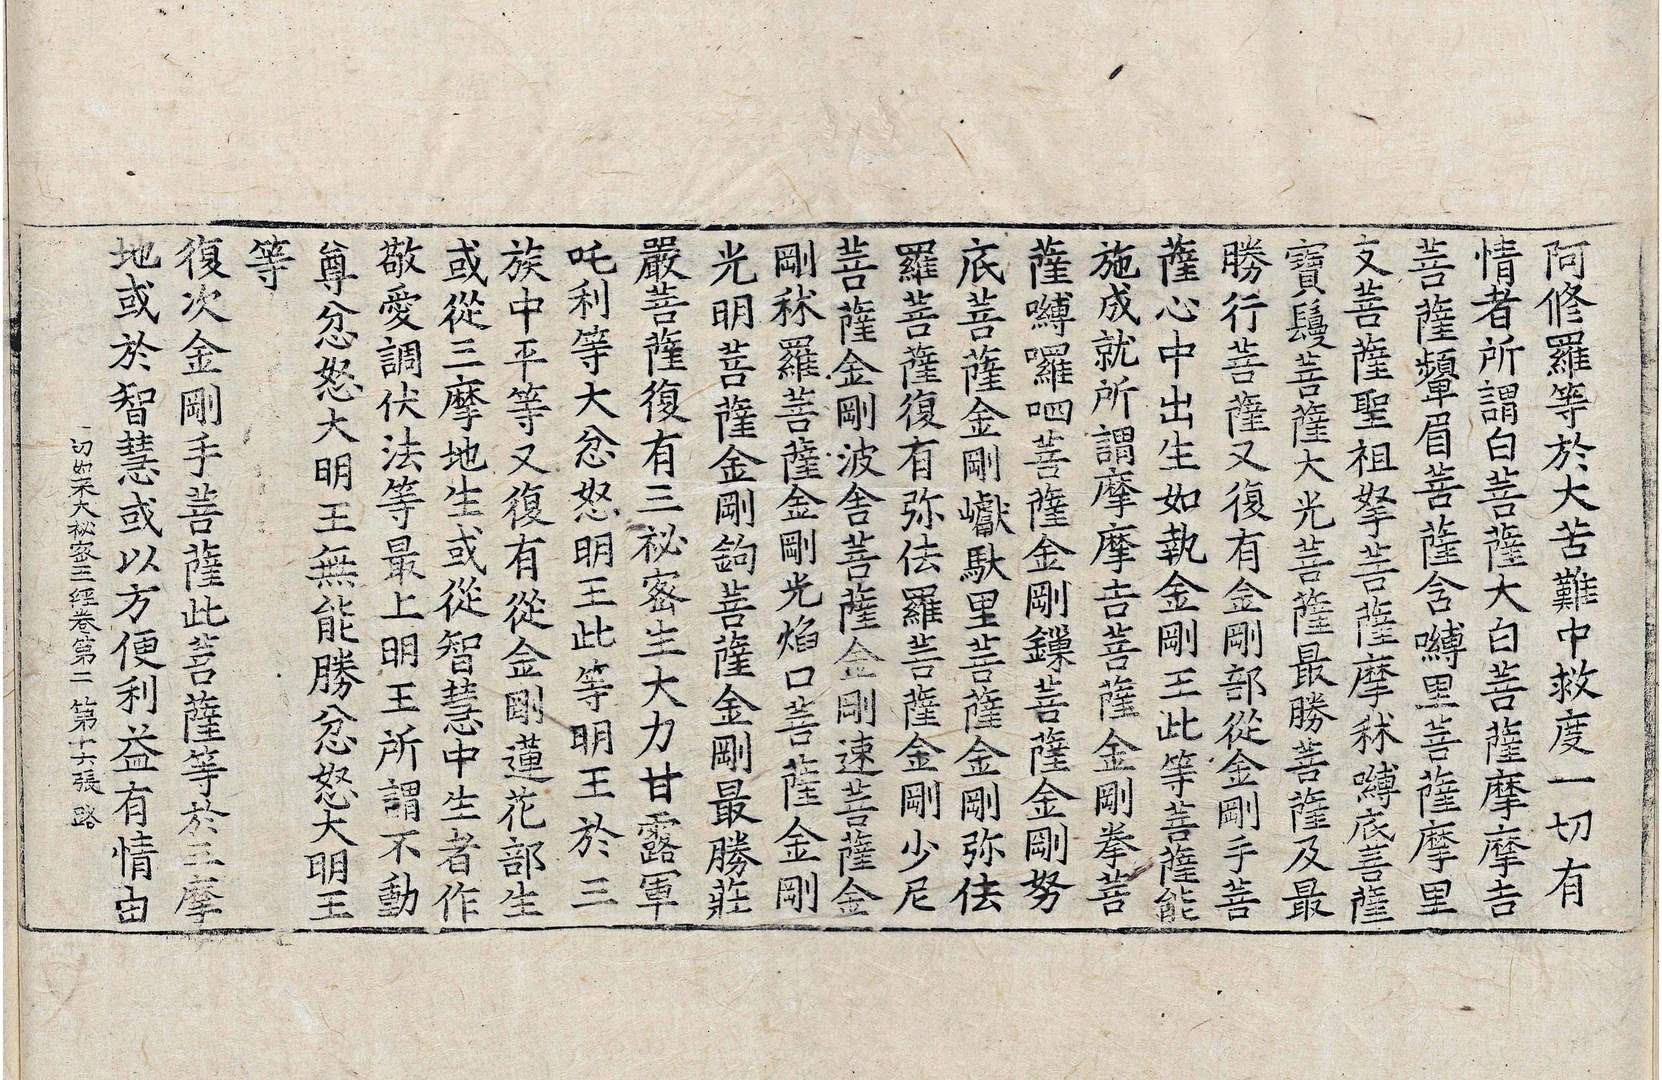 阿修羅等於大苦難中救度一切有
情者所謂白菩薩大白菩薩摩摩吉
菩薩顰眉菩薩含嚩里菩薩摩里
支菩薩聖祖拏菩薩摩秫嚩底菩薩
寶鬘菩薩大光菩薩最勝菩薩及最
勝行菩薩又復有金剛部從金剛手菩
薩心中出生如執金剛王此等菩薩能
施成就所謂摩摩吉菩薩金剛拳菩
薩嚩囉呬菩薩金剛鏁菩薩金剛努
底菩薩金剛巘馱里菩薩金剛弥佉
羅菩薩復有弥佉羅菩薩金剛少尼
菩薩金剛波舍菩薩金剛速菩薩金
剛秫羅菩薩金剛光焰口菩薩金剛
光明菩薩金剛鉤菩薩金剛最勝莊
嚴菩薩復有三祕密生大力甘露軍
吒利等大忿怒明王此等明王於三
族中平等又復有從金剛蓮花部生
或從三摩地生或從智慧中生者作
敬愛調伏法等最上明王所謂不動
尊忿怒大明王無能勝忿怒大明王
等
復次金剛手菩薩此菩薩等於三摩
地或於智慧或以方便利益有情由
一切如來大祕密王經卷第二 第十六張 路